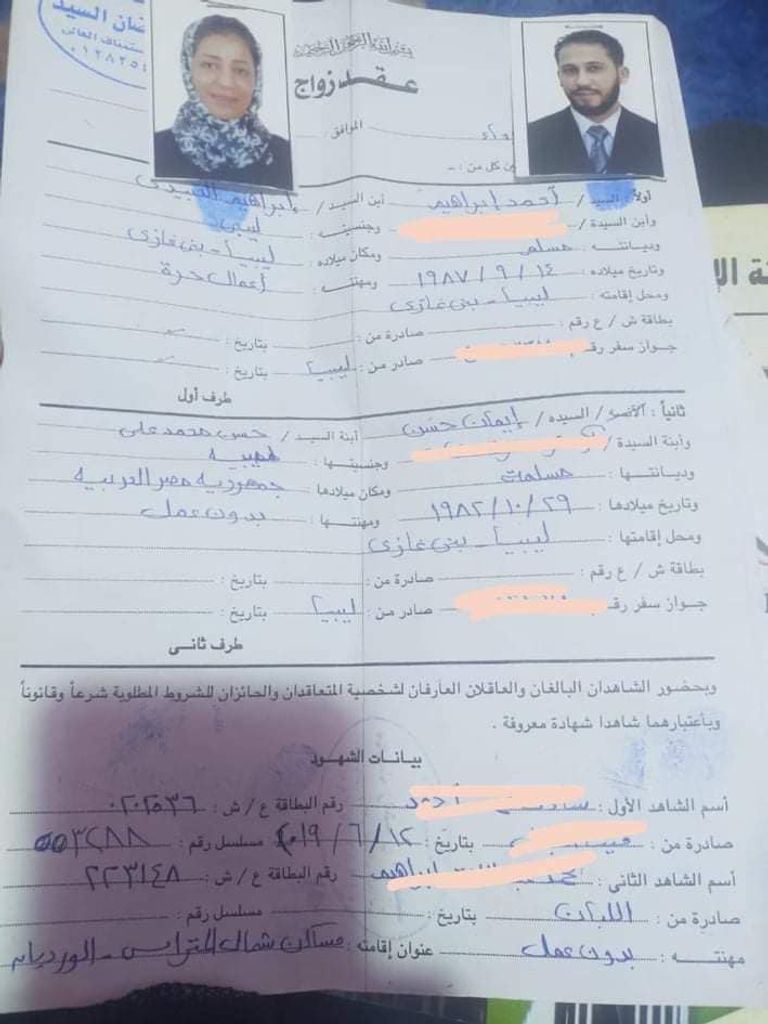 ان السيد
٠١٢٨٢٥
بسم الله الرحمن الرحيم
عقد زواج
الموافق :
بين كل من : -
أولاً : السيد / أحمد إبراهيم ابن السيد / إبراهيم العبيدي
وابن السيدة / وجنسيته : ليبي
وديانته : مسلم ومكان ميلاده : ليبيا - بني غازي
وتاريخ ميلاده : ١٤ / ٩ / ١٩٨٧ ومهنته : أعمال حرة
ومحل إقامته : ليبيا - بني غازي
بطاقة ش / ع رقم : صادرة من : بتاريخ :
جواز سفر رقم صادر من : ليبيا بتاريخ :
طرف أول
ثانياً : الآنسة / السيده / إيمان حسن ابنة السيد / حسن محمد علي
وابنة السيدة / وجنسيتها : ليبيه
وديانتها : مسلمة ومكان ميلادها جمهورية مصر العربية
وتاريخ ميلادها : ٢٩ / ١٠ / ١٩٨٢ ومهنتها : بدون عمل
ومحل إقامتها : ليبيا - بني غازي
بطاقة ش / ع رقم : صادرة من : بتاريخ :
جواز سفر رقم صادر من : ليبيا بتاريخ :
طرف ثانى
وبحضور الشاهدان البالغان والعاقلان العارفان لشخصية المتعاقدان والحائزان للشروط المطلوبة شرعاً وقانوناً
وبأعتبارهما شاهدا شهادة معروفة .
بيانات الشهود
أسم الشاهد الأول : رقم البطاقة ع / ش :
صادرة من : بتاريخ : ١٢ / ٦ / ٢٠١٩ مسلسل رقم :
أسم الشاهد الثانى : إبراهيم رقم البطاقة ع / ش : ٢٢٣١٤٨
صادرة من : اللبان بتاريخ : مسلسل رقم :
مهنته : بدون عمل عنوان إقامته : مساكن شمال المتراس - الورديان
ة الإ